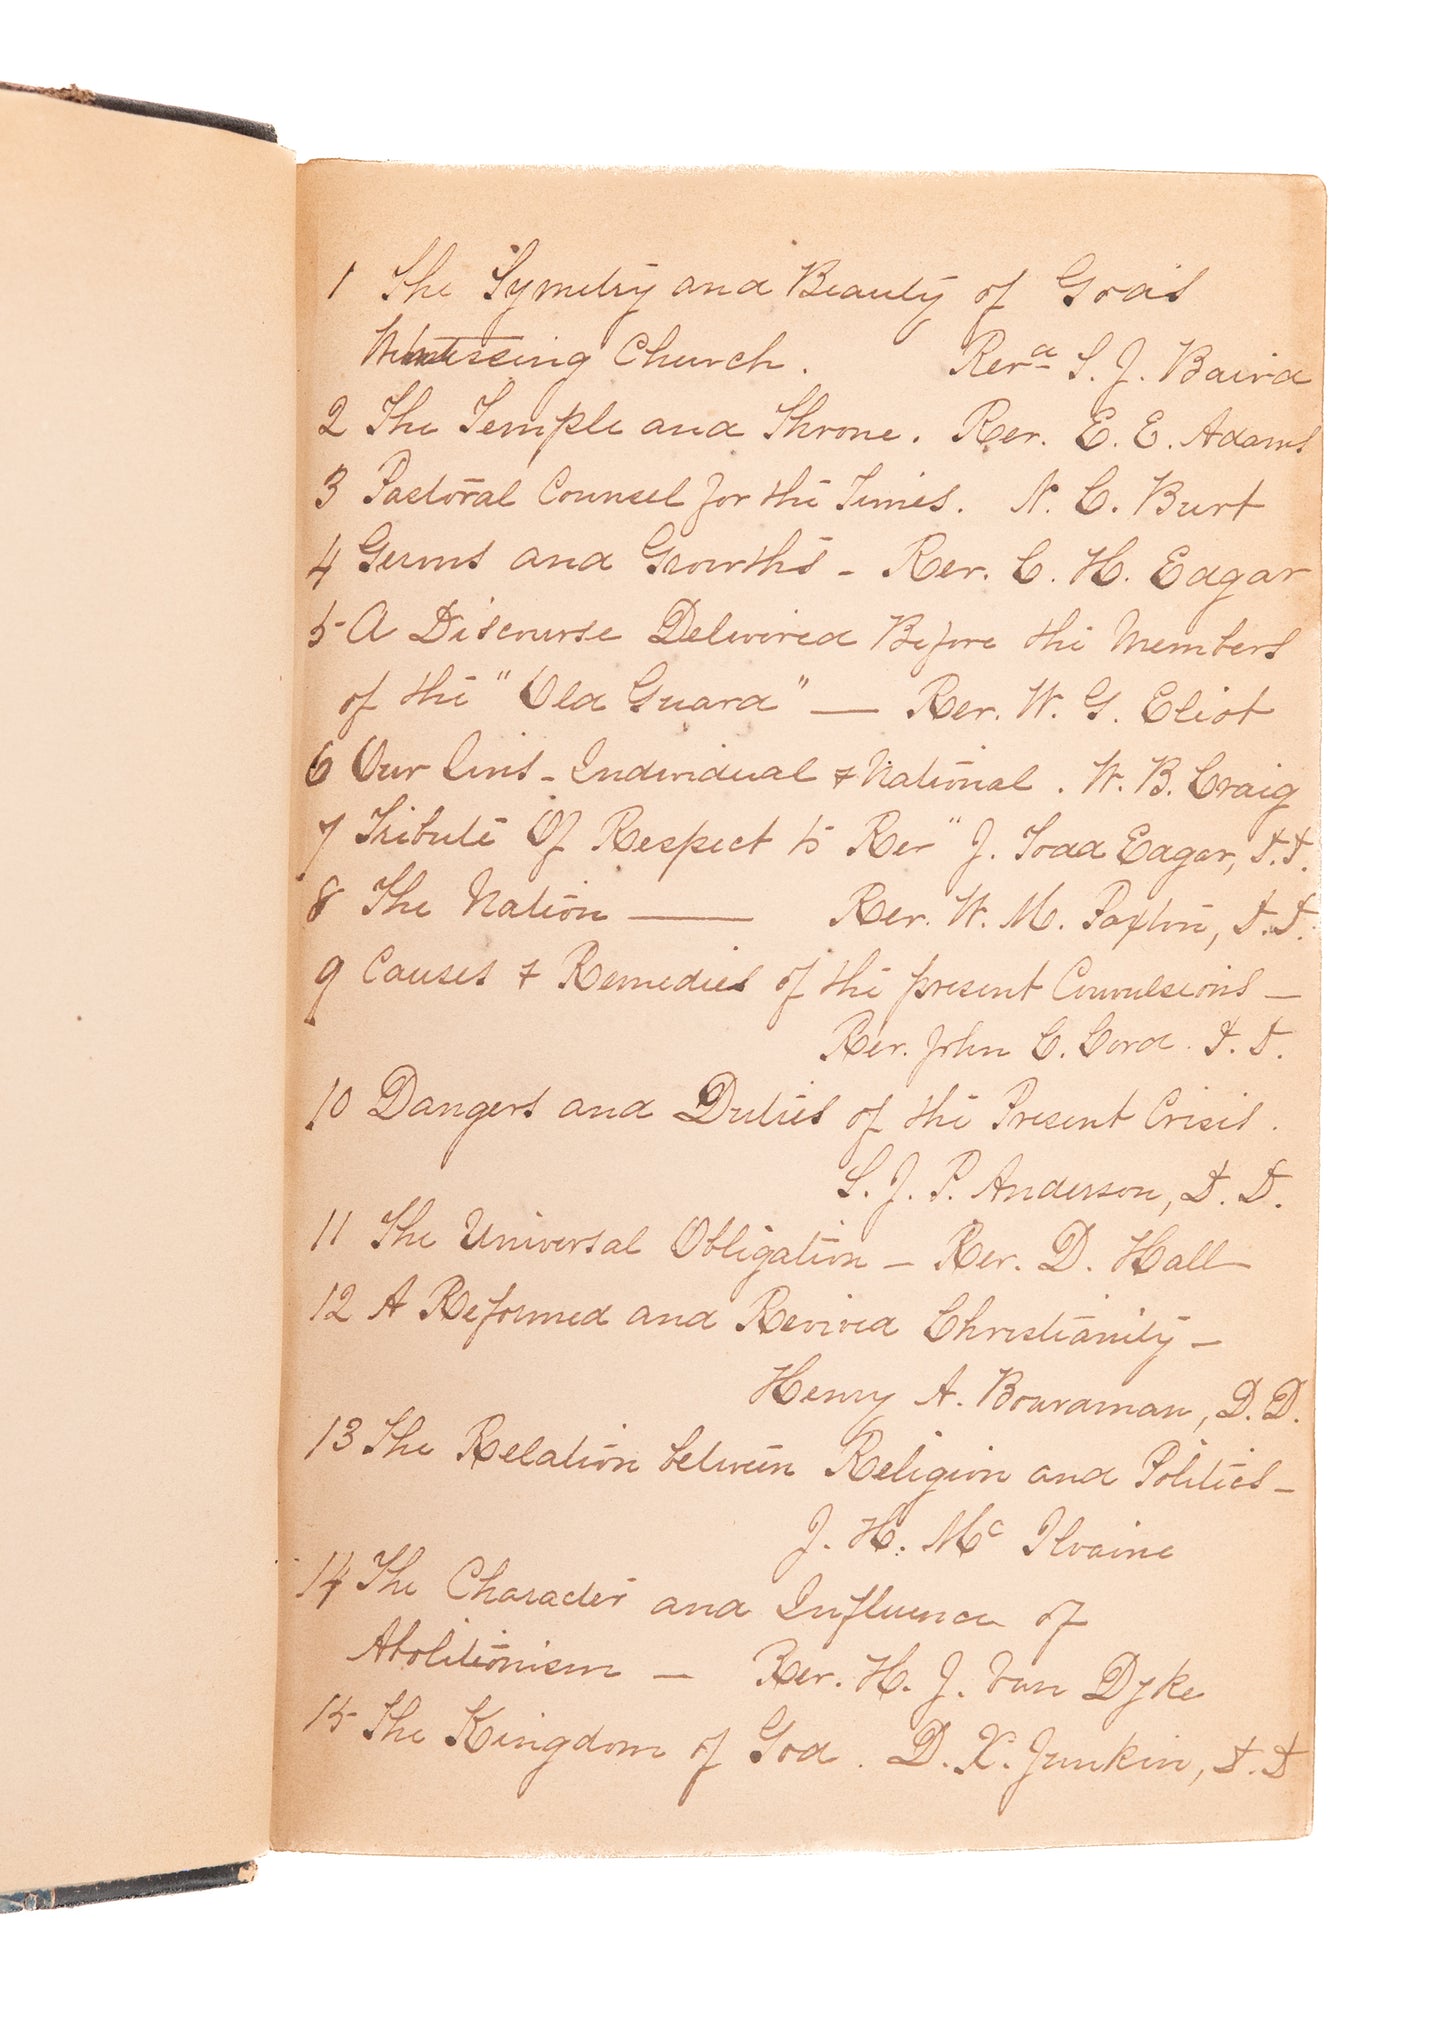 1 The Symetry and Beauty of God's
Witnessing Church. Revd S. J. Baird
2 The Temple and Throne. Rev. E. E. Adams
3 Pastoral Counsel for the Times. N. C. Burt
4 Germs and Growths - Rev. C. H. Edgar
5 A Discourse Delivered Before the Members
of the "Old Guard" — Rev. W. G. Eliot
6 Our Sins - Individual & National. W. B. Craig
7 Tribute Of Respect to Rev" J. Todd Edgar, D.D.
8 The Nation — Rev. W. M. Paxton, D.D.
9 Causes & Remedies of the present Convulsions —
Rev. John C. Lord D. D.
10 Dangers and Duties of the Present Crisis.
S. J. P. Anderson, D. D.
11 The Universal Obligation — Rev. D. Hall
12 A Reformed and Revived Christianity —
Henry A. Boardman, D. D.
13 The Relation between Religion and Politics —
J. H. Mc Ilvaine
14 The Character and Influence of
Abolitionism — Rev. H. J. Van Dyke
15 The Kingdom of God. D. X. Junkin, D. D